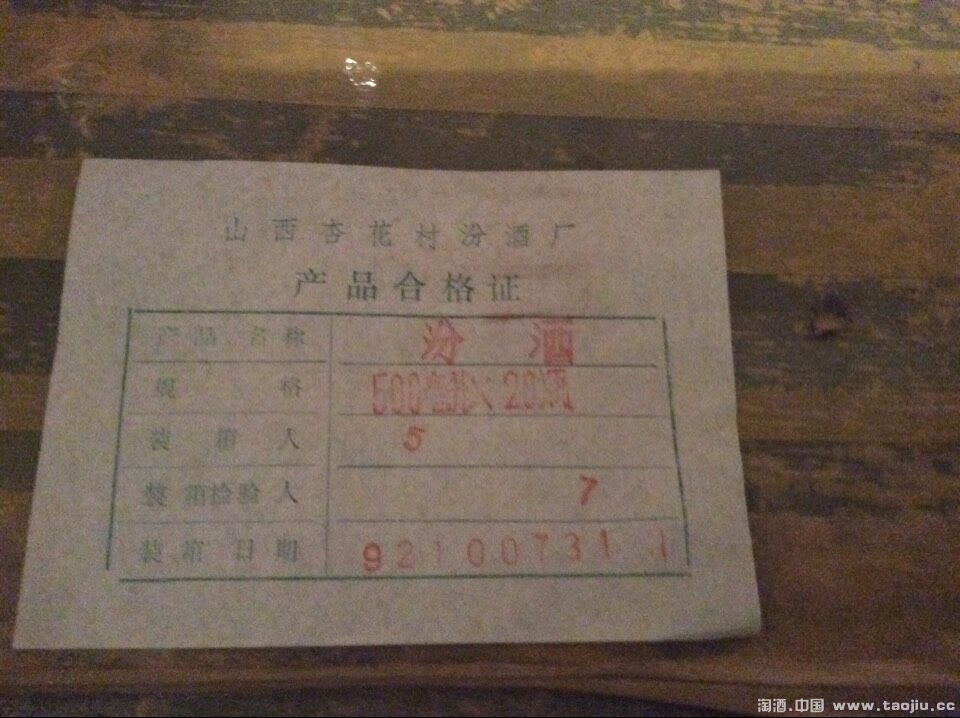 山西杏花村汾酒厂
产品合格证
产品名称 汾酒
规格 500毫升×20瓶
装箱人 5
装箱检验人 7
装箱日期 921007311
淘酒.中国 www.taojiu.cc